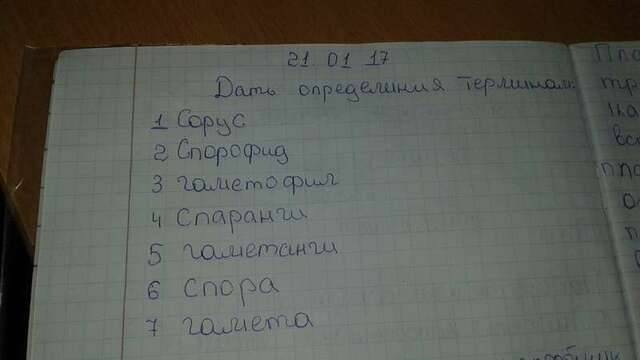 21 01 17
Дать определиния терминам:
1 Сорус
2 Спорофид
3 гаметофил
4 Спаранги
5 гаметанги
6 спора
7 гамета